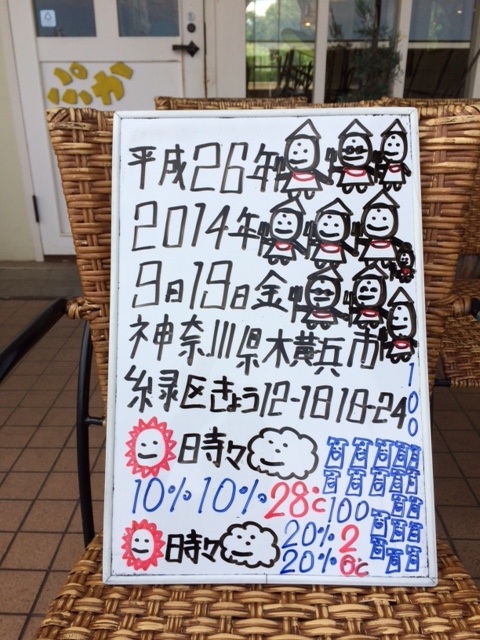 ぷか
平成26年
2014年
9日19日金
神奈川県木横浜市
糸緑区きょう12-18 18-24
100
日時々
10% 10% 28℃ 100
日時々 20% 2
20% 6℃